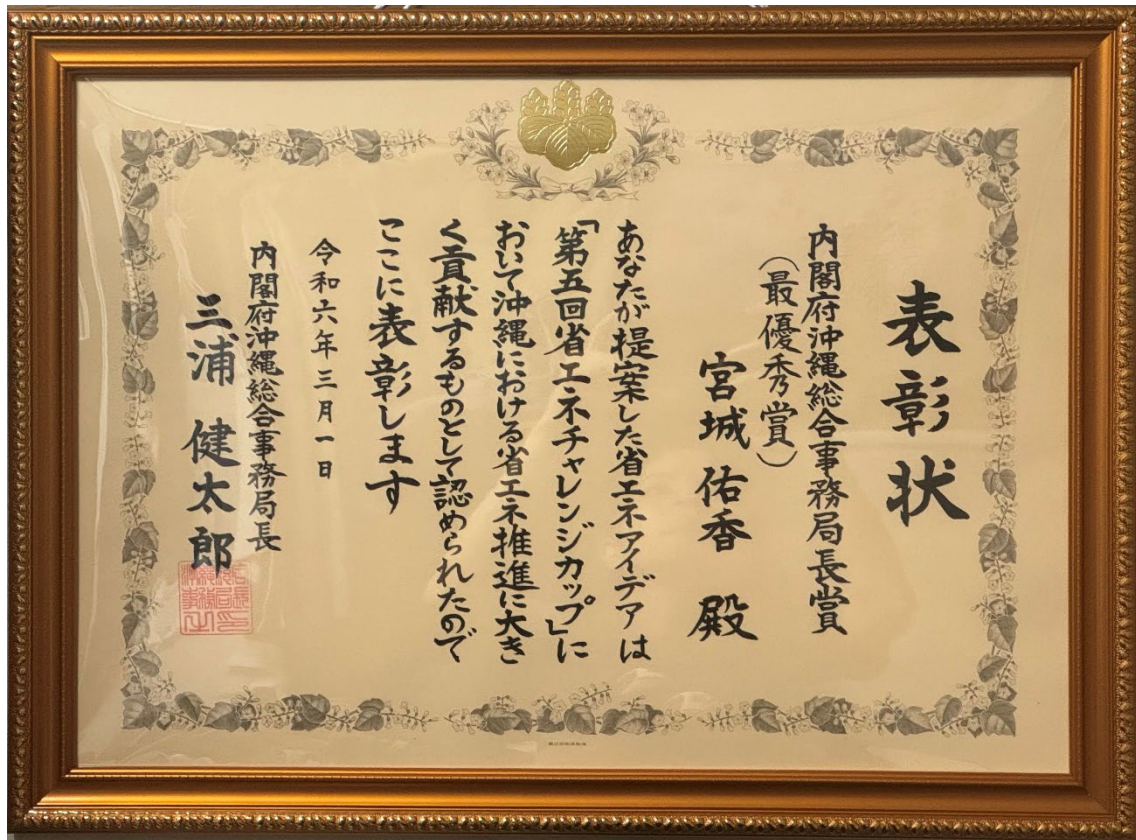 表彰状
内閣府沖縄総合事務局長賞
（最優秀賞）
宮城 佑香 殿
あなたが提案した省エネアイデアは
「第五回省エネチャレンジカップ」に
おいて沖縄における省エネ推進に大き
く貢献するものとして認められたので
ここに表彰します
令和六年三月一日
内閣府沖縄総合事務局長
三浦 健太郎